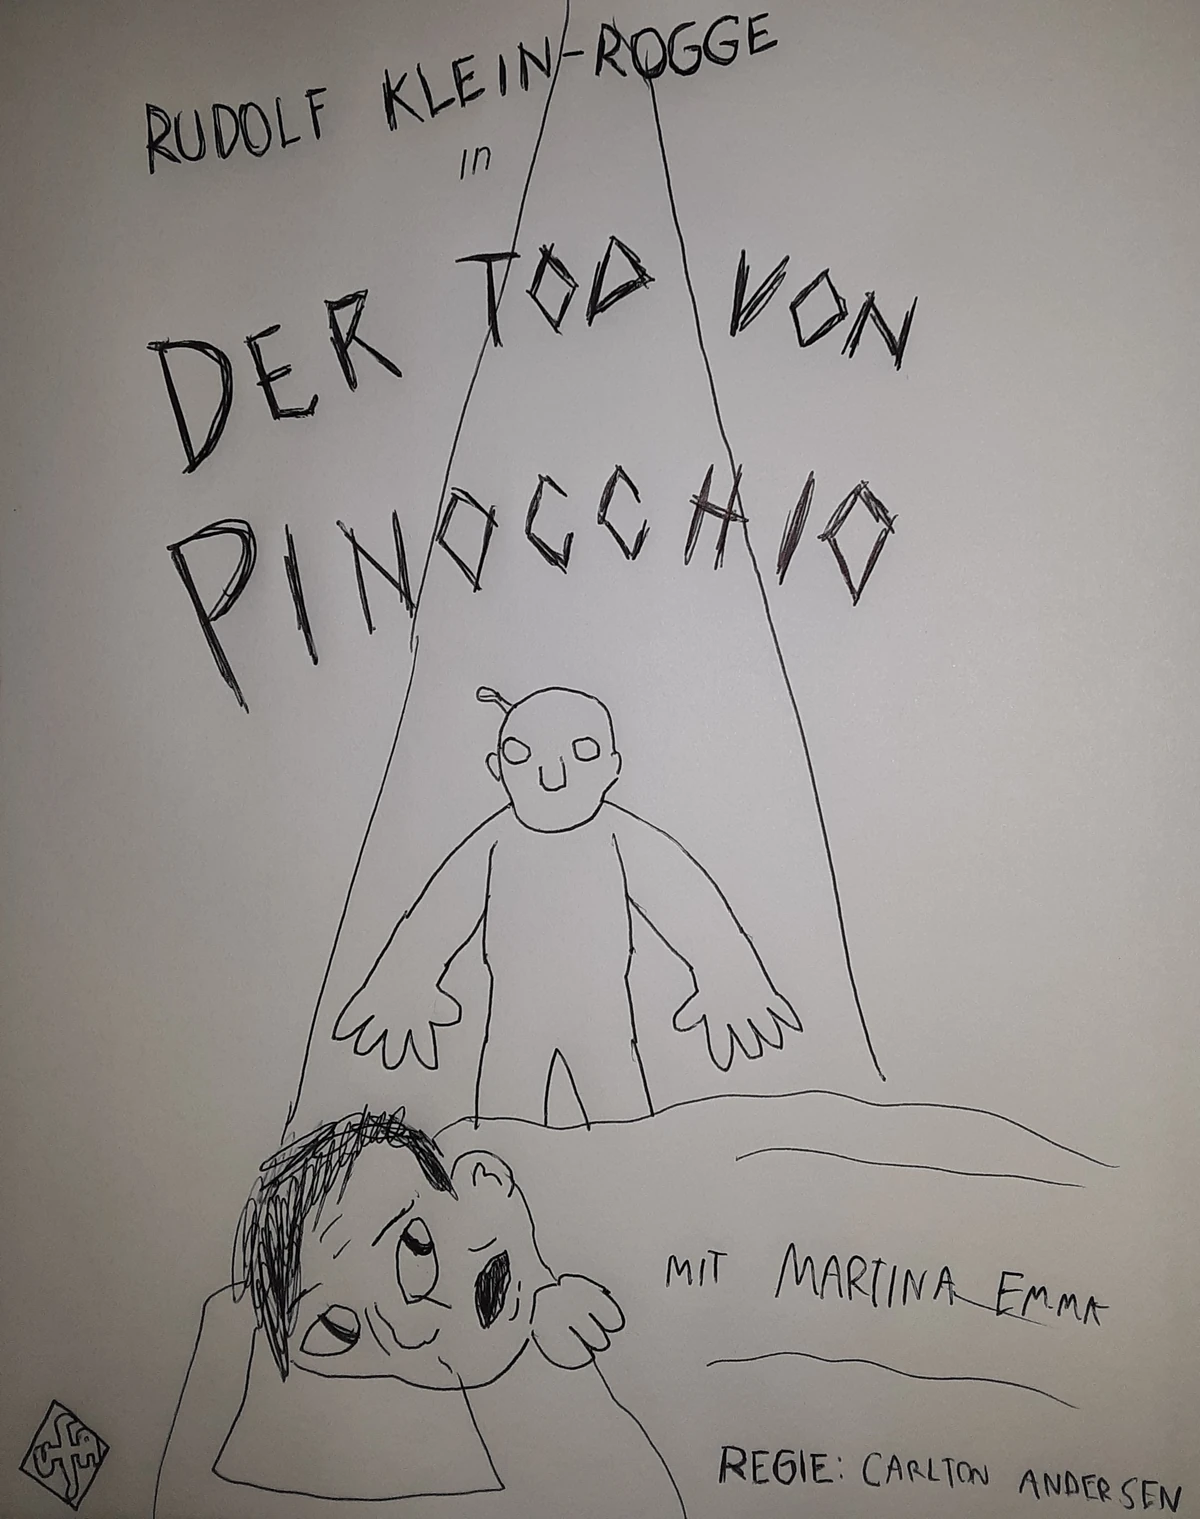 RUDOLF KLEIN-ROGGE
in
DER TOD VON
PINOCCHIO
MIT MARTINA EMMA
REGIE: CARLTON ANDERSEN
Ufa